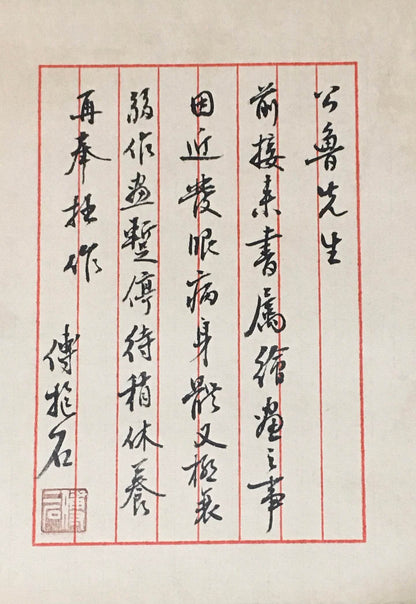 公魯先生
前接来書属繪畫之事
因近發眼病身體又極衰
弱作畫暫停待稍休養
再奉拙作
傅抱石